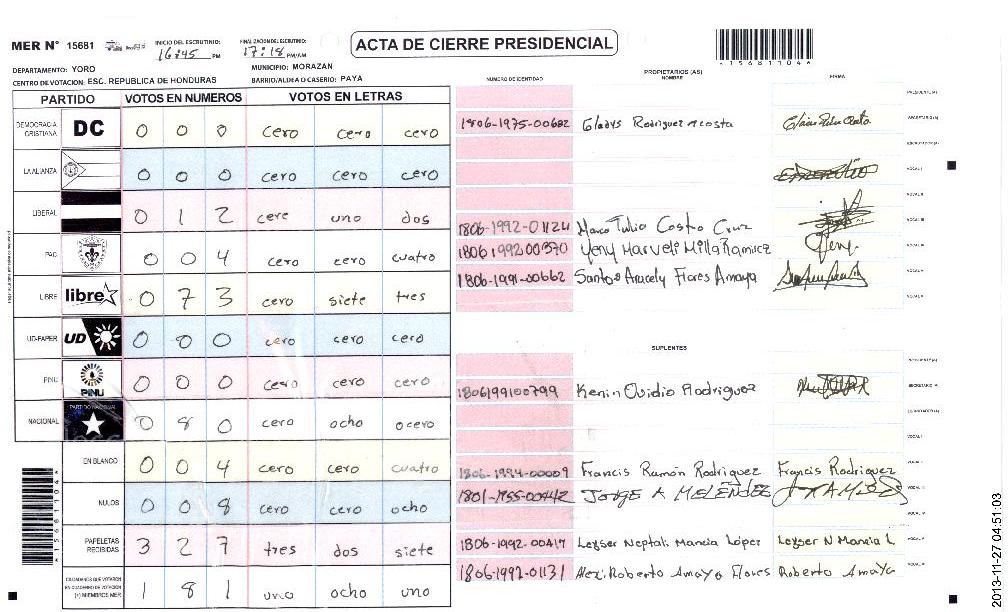 MER N° 15681
INICIO DEL ESCRUTINIO: 16:45 PM
FINALIZACION DEL ESCRUTINIO: 17:18 PM/AM
ACTA DE CIERRE PRESIDENCIAL
*1568110 4*
DEPARTAMENTO: YORO
MUNICIPIO: MORAZAN
CENTRO DE VOTACION: ESC. REPUBLICA DE HONDURAS
BARRIO/ALDEA O CASERIO: PAYA
PARTIDO VOTOS EN NUMEROS VOTOS EN LETRAS
DEMOCRACIA CRISTIANA DC 0 0 0 cero cero cero
LA ALIANZA 0 0 0 cero cero cero
LIBERAL 0 1 2 cere uno dos
PAC 0 0 4 cero cero cuatro
LIBRE libre 0 7 3 cero siete tres
UD-FAPER UD 0 0 0 cero cero cero
PINU PINU 0 0 0 cero cero cero
NACIONAL PARTIDO NACIONAL 0 8 0 cero ocho ocero
EN BLANCO 0 0 4 cero cero cuatro
NULOS 0 0 8 cero cero ocho
PAPELETAS RECIBIDAS 3 2 7 tres dos siete
CIUDADANOS QUE VOTARON EN CUADERNO DE VOTACION (+) MIEMBROS MER 1 8 1 uno ocho uno
NUMERO DE IDENTIDAD
PROPIETARIOS (AS)
NOMBRE
FIRMA
PRESIDENTE(A)
1806-1975-00682 Gladys Rodriguez Acosta
SECRETARIO(A)
ESCRUTADOR(A)
VOCAL I
VOCAL II
1806-1992-01124 Marco Tulio Costro Cruz
VOCAL III
1806199200570 Yeny Marveli Milla Ramirez Yeny
1806-1991-00662 Santos Aracely Flores Amaya
SUPLENTES
1806199100799 Kenin Ovidio Rodriguez
SECRETARIO(A)
VOCAL I
1806-1994-00009 Francis Ramón Rodriguez Francis Rodriguez
1801-1955-00442 JORGE A MELÉNDEZ
1806-1992-00417 Leyser Neptali Mancia López Leyser N Mancia L
1806-1992-01131 Alexi Roberto Amaya Flores Roberto Amaya
2013-11-27 04:51:03